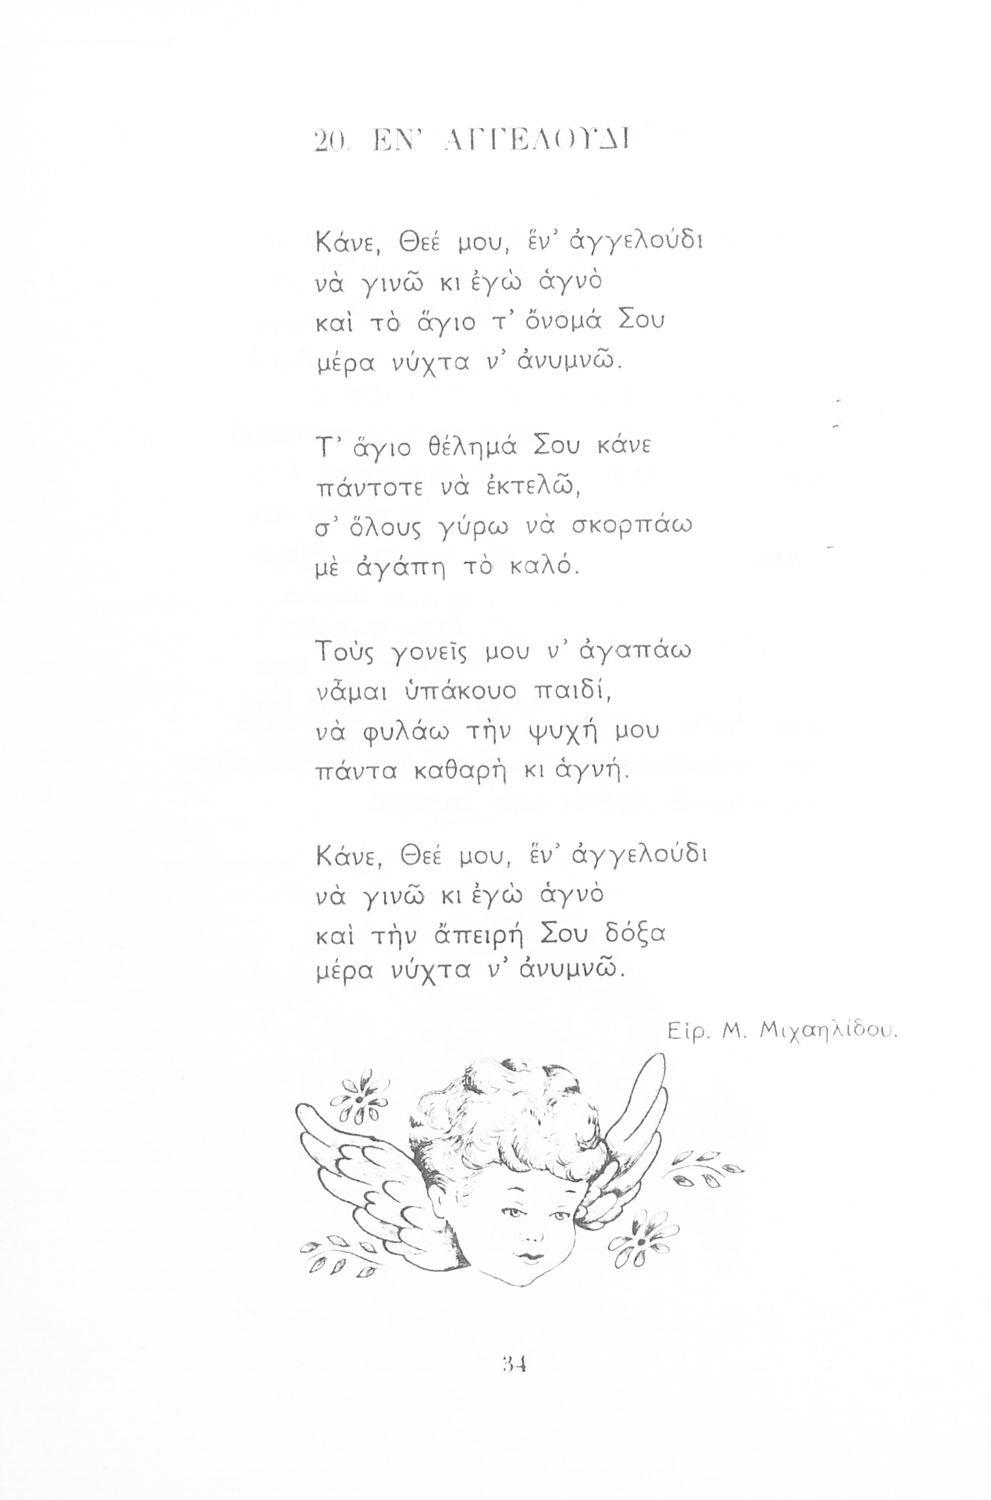 20. ΕΝ' ΑΓΓΕΛΟΥΔΙ
Κάνε, Θεέ μου, ἕν' ἀγγελούδι
νὰ γινῶ κι ἐγὼ ἁγνὸ
καὶ τὸ ἅγιο τ' ὄνομά Σου
μέρα νύχτα ν' ἀνυμνῶ.
Τ' ἅγιο θέλημά Σου κάνε
πάντοτε νὰ ἐκτελῶ,
σ' ὅλους γύρω νὰ σκορπάω
μὲ ἀγάπη τὸ καλό.
Τοὺς γονεῖς μου ν' ἀγαπάω
νἆμαι ὑπάκουο παιδί,
νὰ φυλάω τὴν ψυχή μου
πάντα καθαρὴ κι ἁγνή.
Κάνε, Θεέ μου, ἕν' ἀγγελούδι
νὰ γινῶ κι ἐγὼ ἁγνὸ
καὶ τὴν ἄπειρή Σου δόξα
μέρα νύχτα ν' ἀνυμνῶ.
Εἰρ. Μ. Μιχαηλίδου.
34